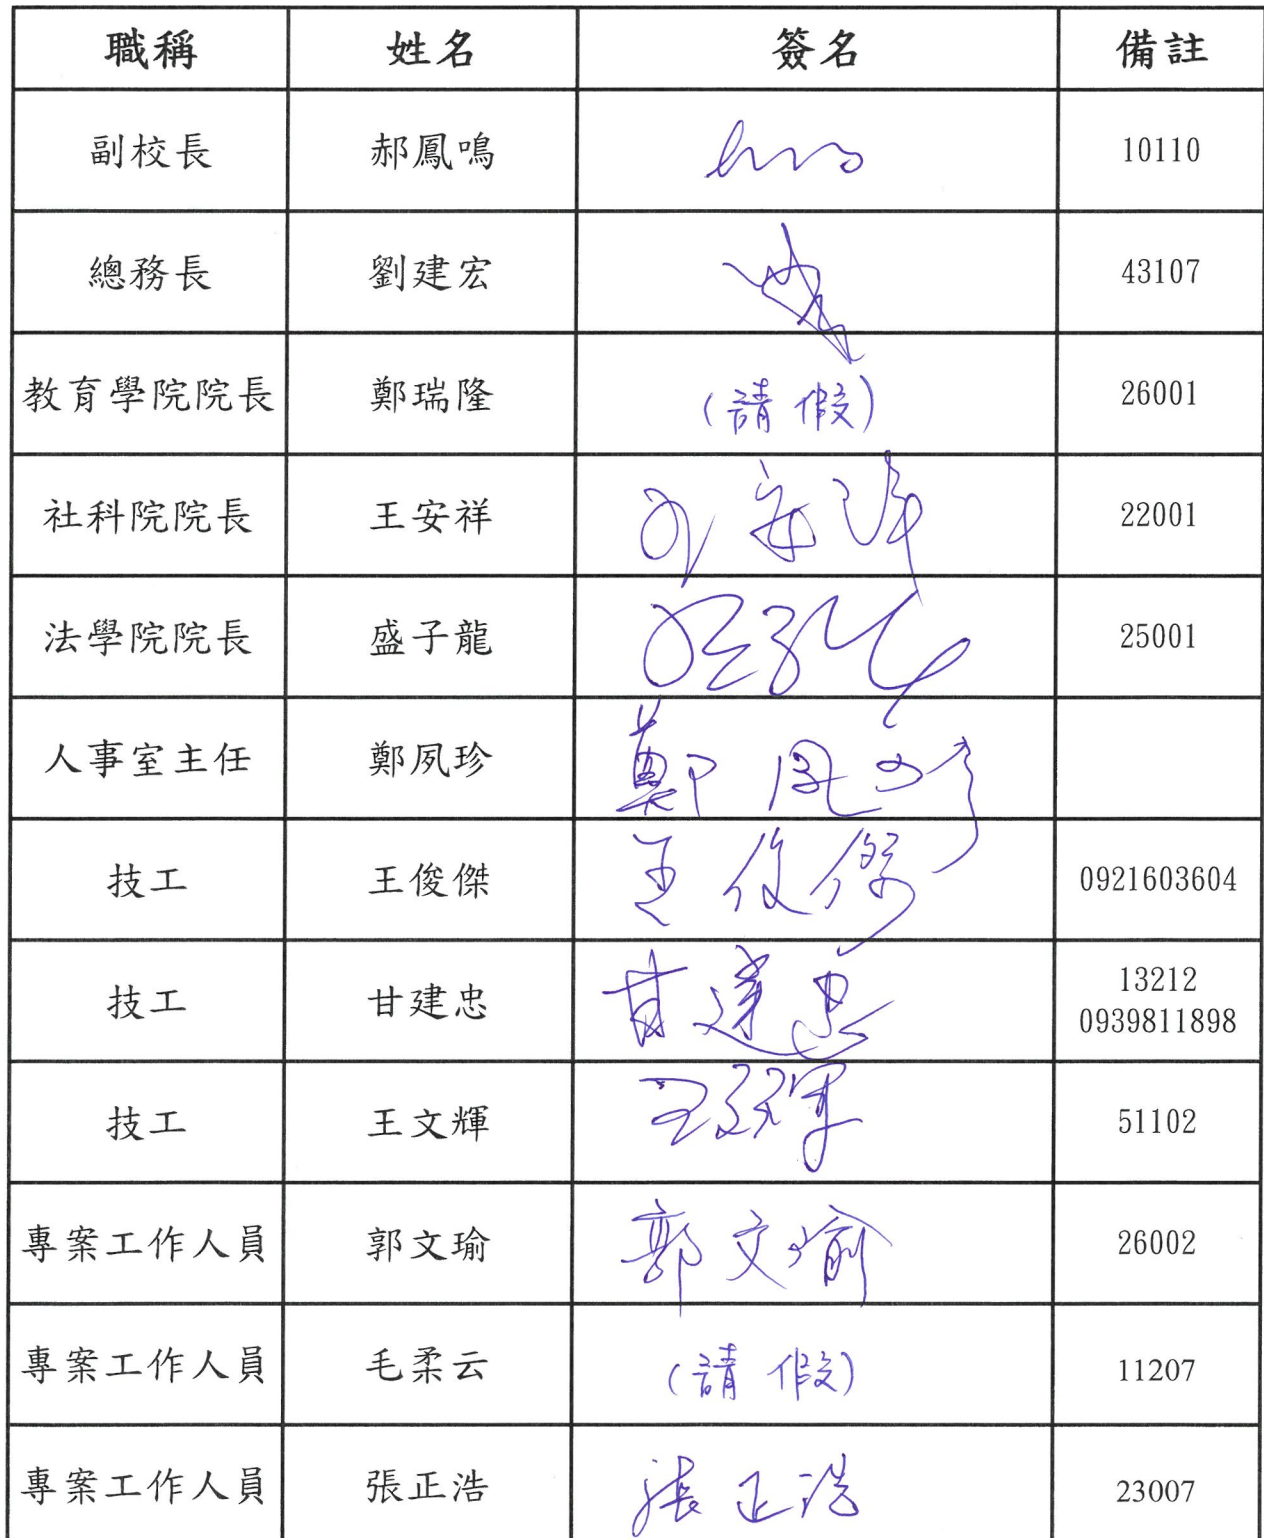 職稱 姓名 簽名 備註
副校長 郝鳳鳴 10110
總務長 劉建宏 43107
教育學院院長 鄭瑞隆 (請假) 26001
社科院院長 王安祥 王安祥 22001
法學院院長 盛子龍 25001
人事室主任 鄭夙珍 鄭夙珍
技工 王俊傑 王俊傑 0921603604
技工 甘建忠 甘建忠 13212
0939811898
技工 王文輝 王文輝 51102
專案工作人員 郭文瑜 郭文瑜 26002
專案工作人員 毛柔云 (請假) 11207
專案工作人員 張正浩 張正浩 23007